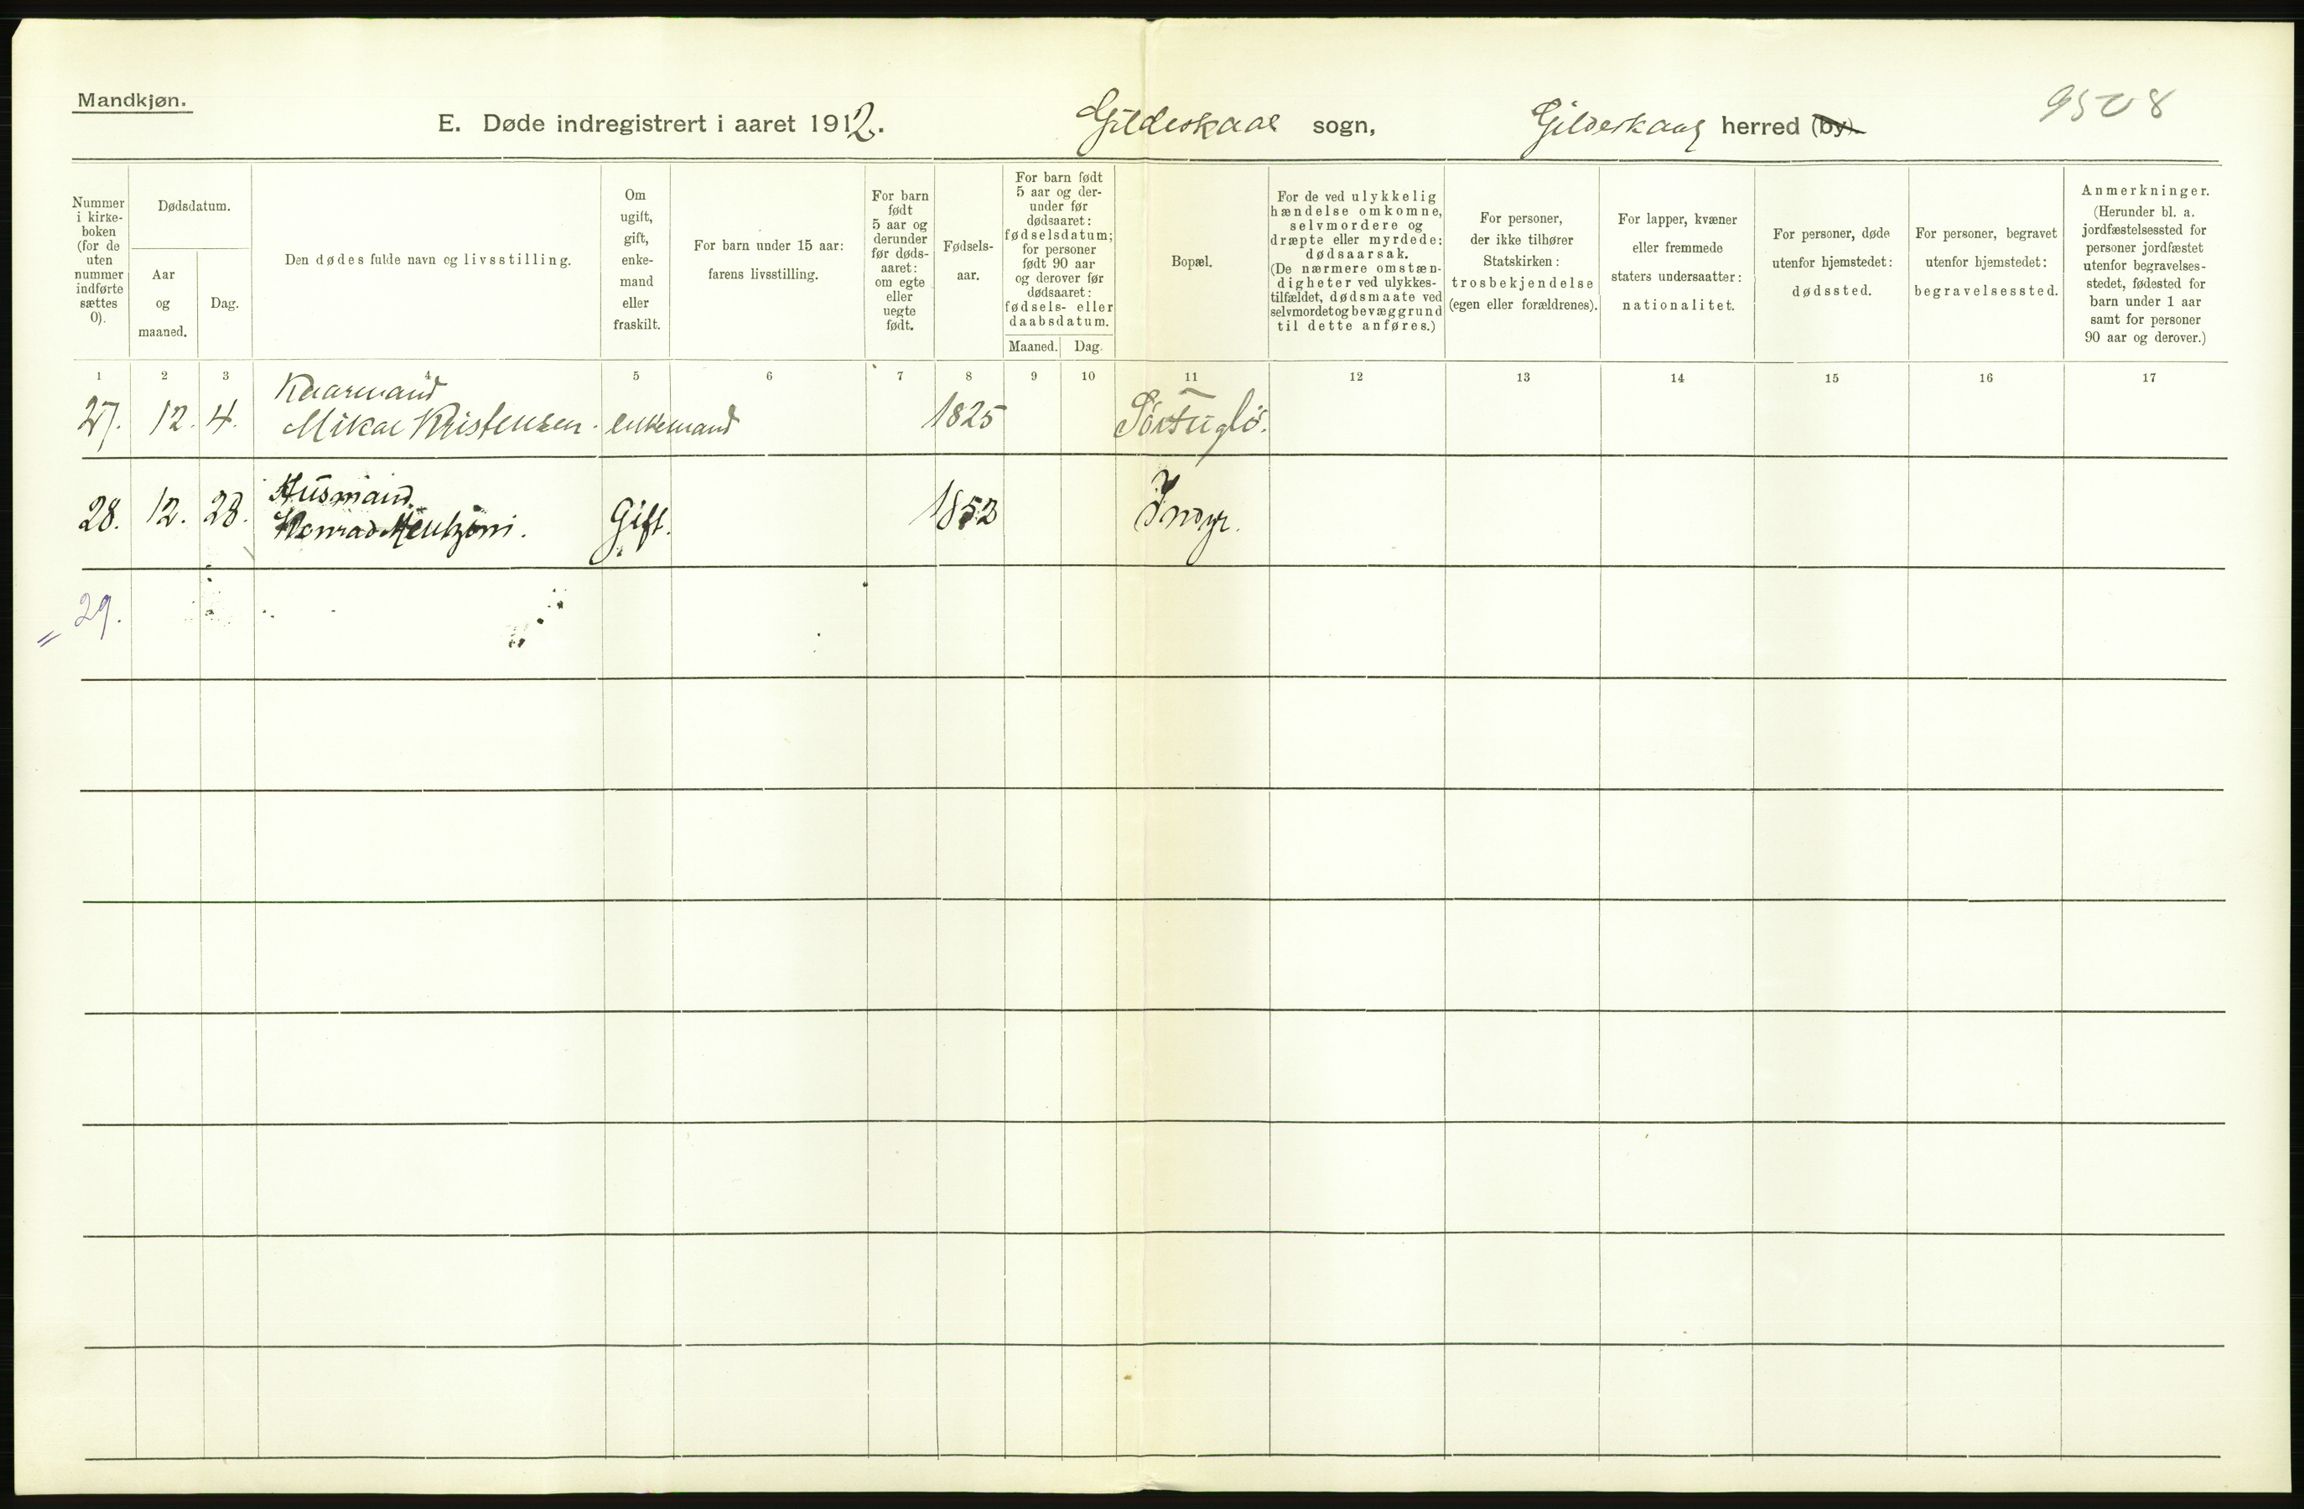 Mandkjøn.
E. Døde indregistrert i aaret 1912.
Gildeskaal sogn,
herred (by).
Nummer
i kirke-
boken
(for de
uten
nummer
indførte
sættes
0).
Dødsdatum.
Aar
og
maaned.
Dag.
Den dødes fulde navn og livsstilling.
Om
ugift,
gift,
enke-
mand
eller
fraskilt.
For barn under 15 aar:
farens livsstilling.
For barn
født
5 aar og
derunder
før døds-
aaret:
om egte
eller
uegte
født.
Fødsels-
aar.
For barn født
5 aar og der-
under før
dødsaaret:
fødselsdatum;
for personer
født 90 aar
og derover før
dødsaaret:
fødsels- eller
daabsdatum.
Maaned.
Dag.
Bopæl.
For de ved ulykkelig
hændelse omkomne,
selvmordere og
dræpte eller myrdede:
dødsaarsak.
(De nærmere omstæn-
digheter ved ulykkes-
tilfældet, dødsmaate ved
selvmordet og bevæggrund
til dette anføres.)
For personer,
der ikke tilhører
Statskirken:
trosbekjendelse
(egen eller forældrenes).
For lapper, kvæner
eller fremmede
staters undersaatter:
nationalitet.
For personer, døde
utenfor hjemstedet:
dødssted.
For personer, begravet
utenfor hjemstedet:
begravelsessted.
Anmerkninger.
(Herunder bl. a.
jordfæstelsessted for
personer jordfæstet
utenfor begravelses-
stedet, fødested for
barn under 1 aar
samt for personer
90 aar og derover.)
1 2 3 4 5 6 7 8 9 10 11 12 13 14 15 16 17
Kaarmand
27. 12. 4. Mikal Kristensen. enkemand 1825
Husmand.
28. 12. 28. Konrad Gift. 1852 Indyr.
29.